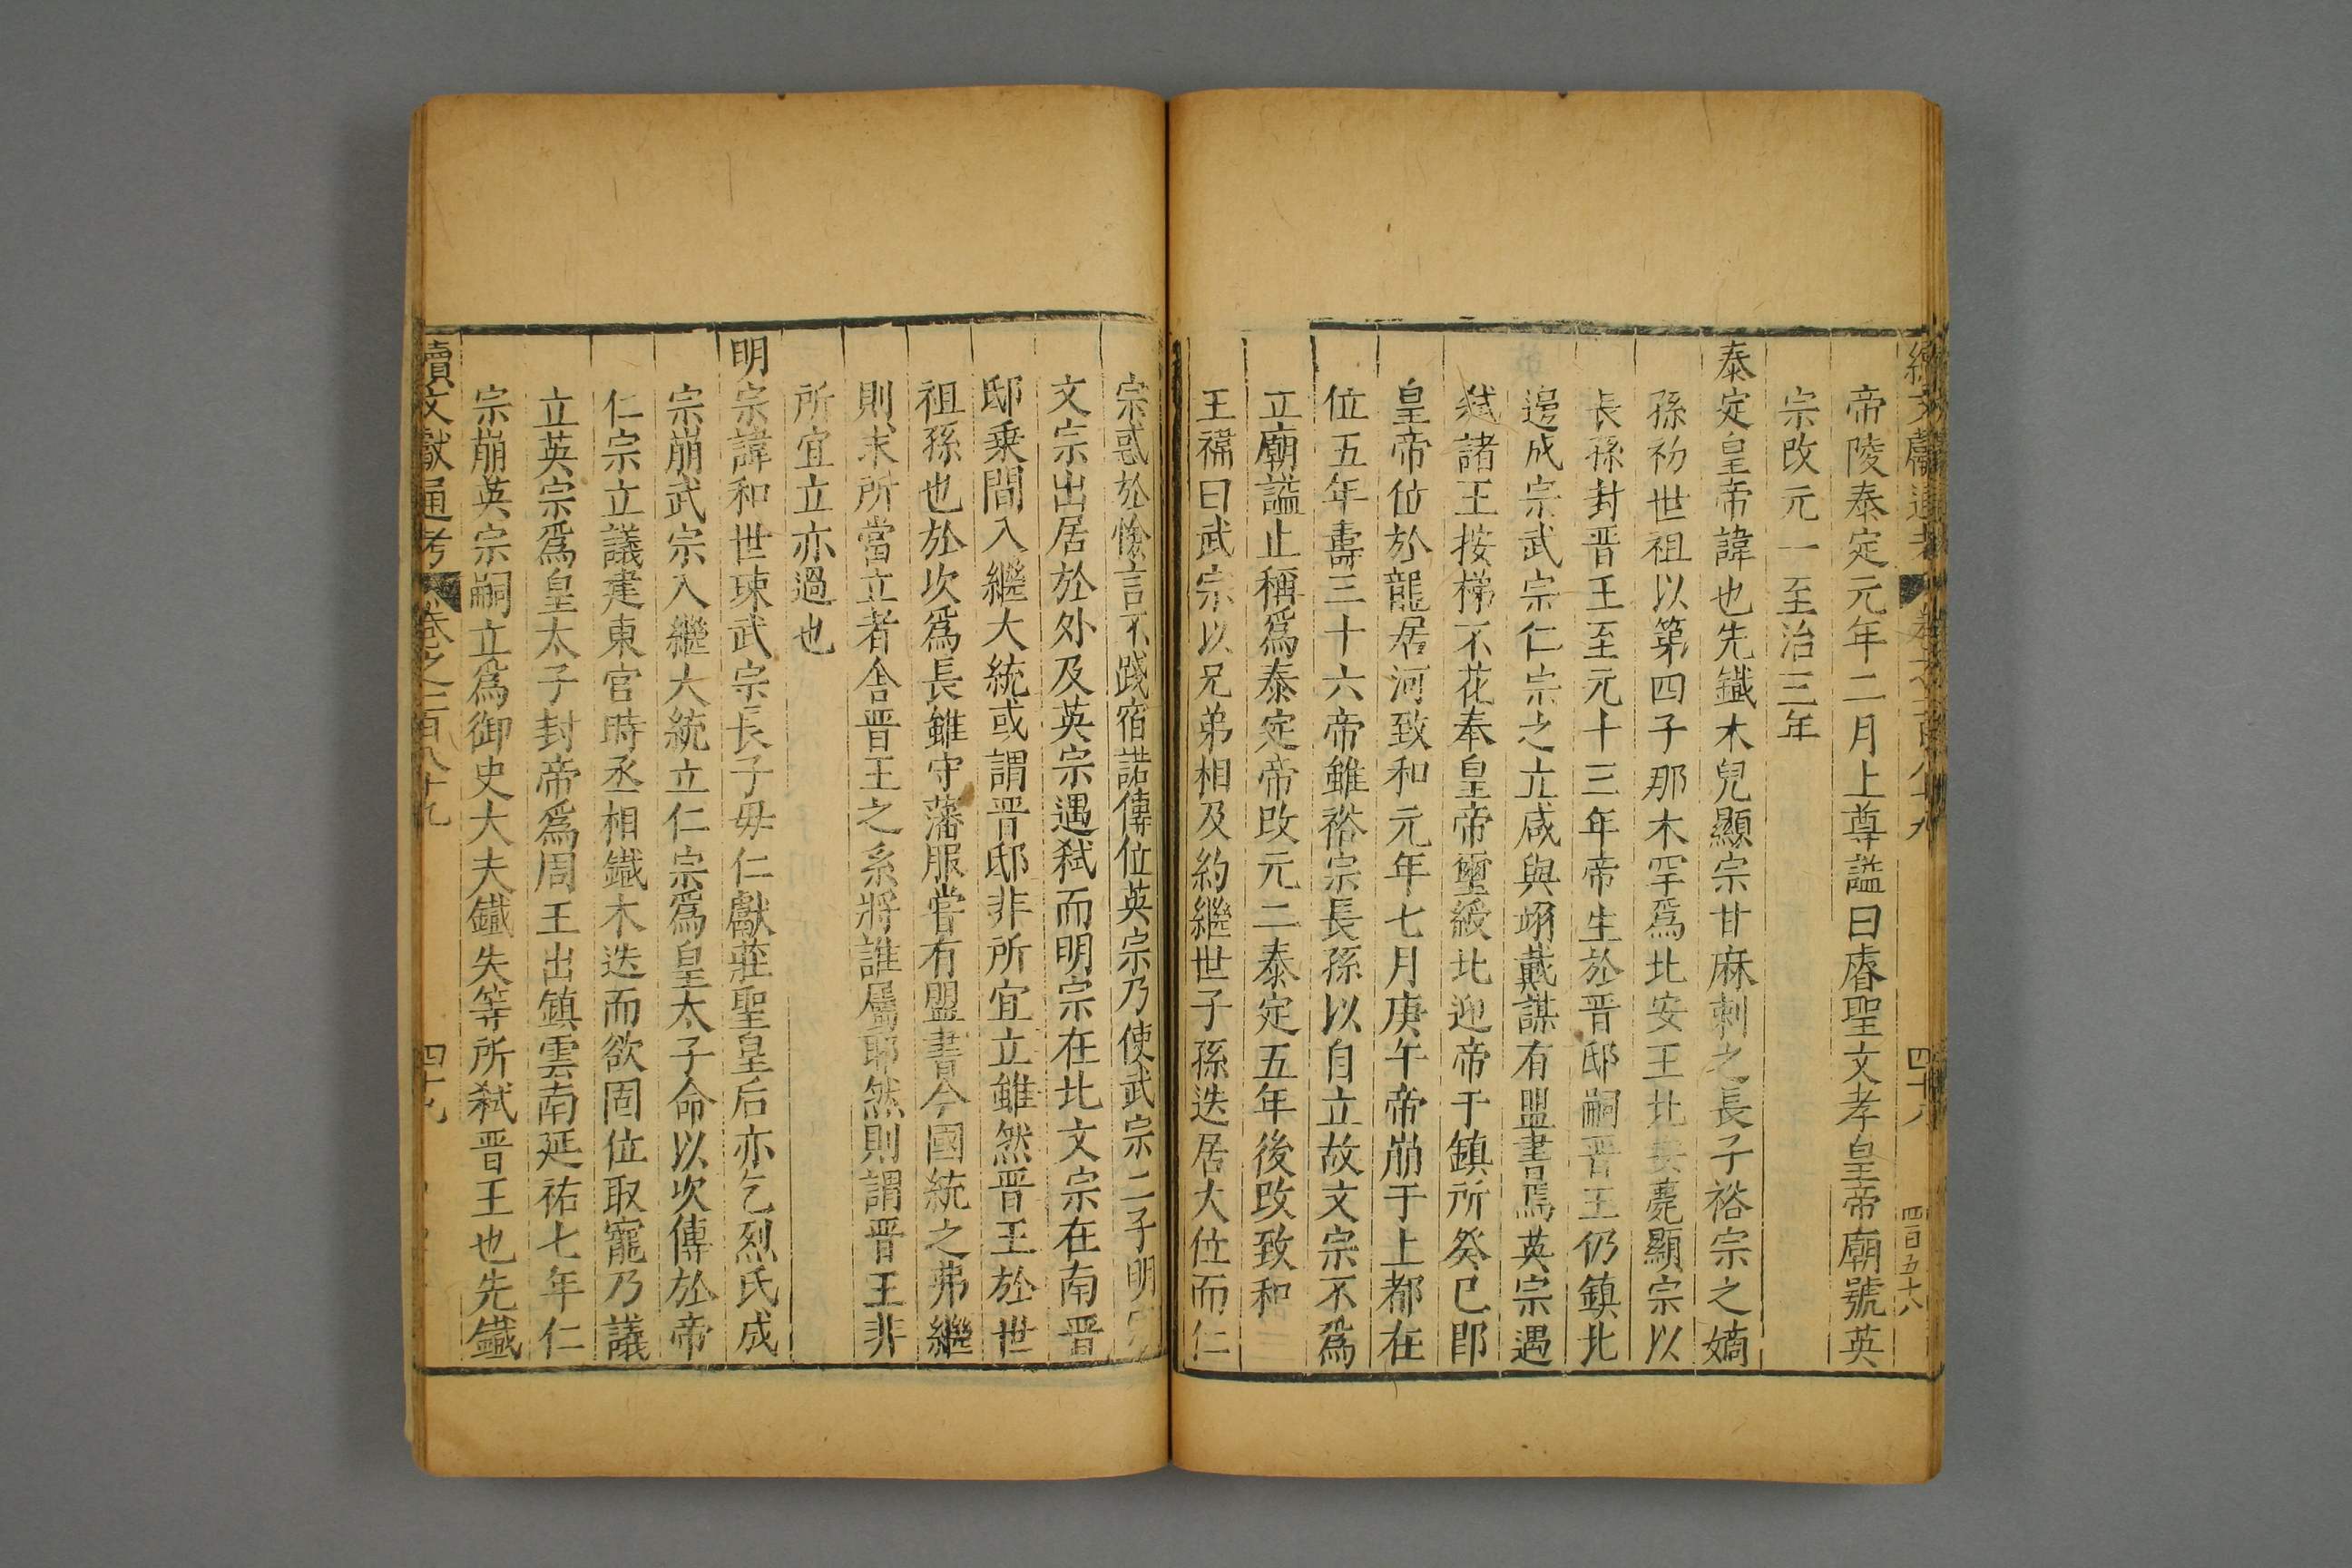 續文獻通考 卷之二百八十九 四十八 四百五十八
帝陵泰定元年二月上尊謚曰睿聖文孝皇帝廟號英
宗改元一至治三年
泰定皇帝諱也先鐵木兒顯宗甘麻剌之長子裕宗之嫡
孫初世祖以第四子那木罕爲北安王北安薨顯宗以
長孫封晋王至元十三年帝生於晋邸嗣晋王仍鎮北
邊成宗武宗仁宗之立咸與翊戴謀有盟書焉英宗遇
弑諸王按梯不花奉皇帝璽綬北迎帝于鎮所癸巳即
皇帝位於龍居河致和元年七月庚午帝崩于上都在
位五年壽三十六帝雖裕宗長孫以自立故文宗不爲
立廟謚止稱爲泰定帝改元二泰定五年後改致和
王禕曰武宗以兄弟相及約繼世子孫迭居大位而仁
宗惑於憸言不踐宿諾傳位英宗乃使武宗二子明宗
文宗出居於外及英宗遇弑而明宗在北文宗在南晋
邸乗間入繼大統或謂晋邸非所宜立雖然晋王於世
祖孫也於次爲長雖守藩服嘗有盟書今國統之弗繼
則求所當立者舎晋王之系將誰屬耶然則謂晋王非
所宜立亦過也
明宗諱和世㻋武宗長子毋仁獻莊聖皇后亦乞烈氏成
宗崩武宗入繼大統立仁宗爲皇太子命以次傳於帝
仁宗立議建東宫時丞相鐵木迭而欲固位取寵乃議
立英宗爲皇太子封帝爲周王出鎮雲南延祐七年仁
宗崩英宗嗣立爲御史大夫鐵失等所弑晋王也先鐵
續文獻通考 卷之二百八十九 四十九